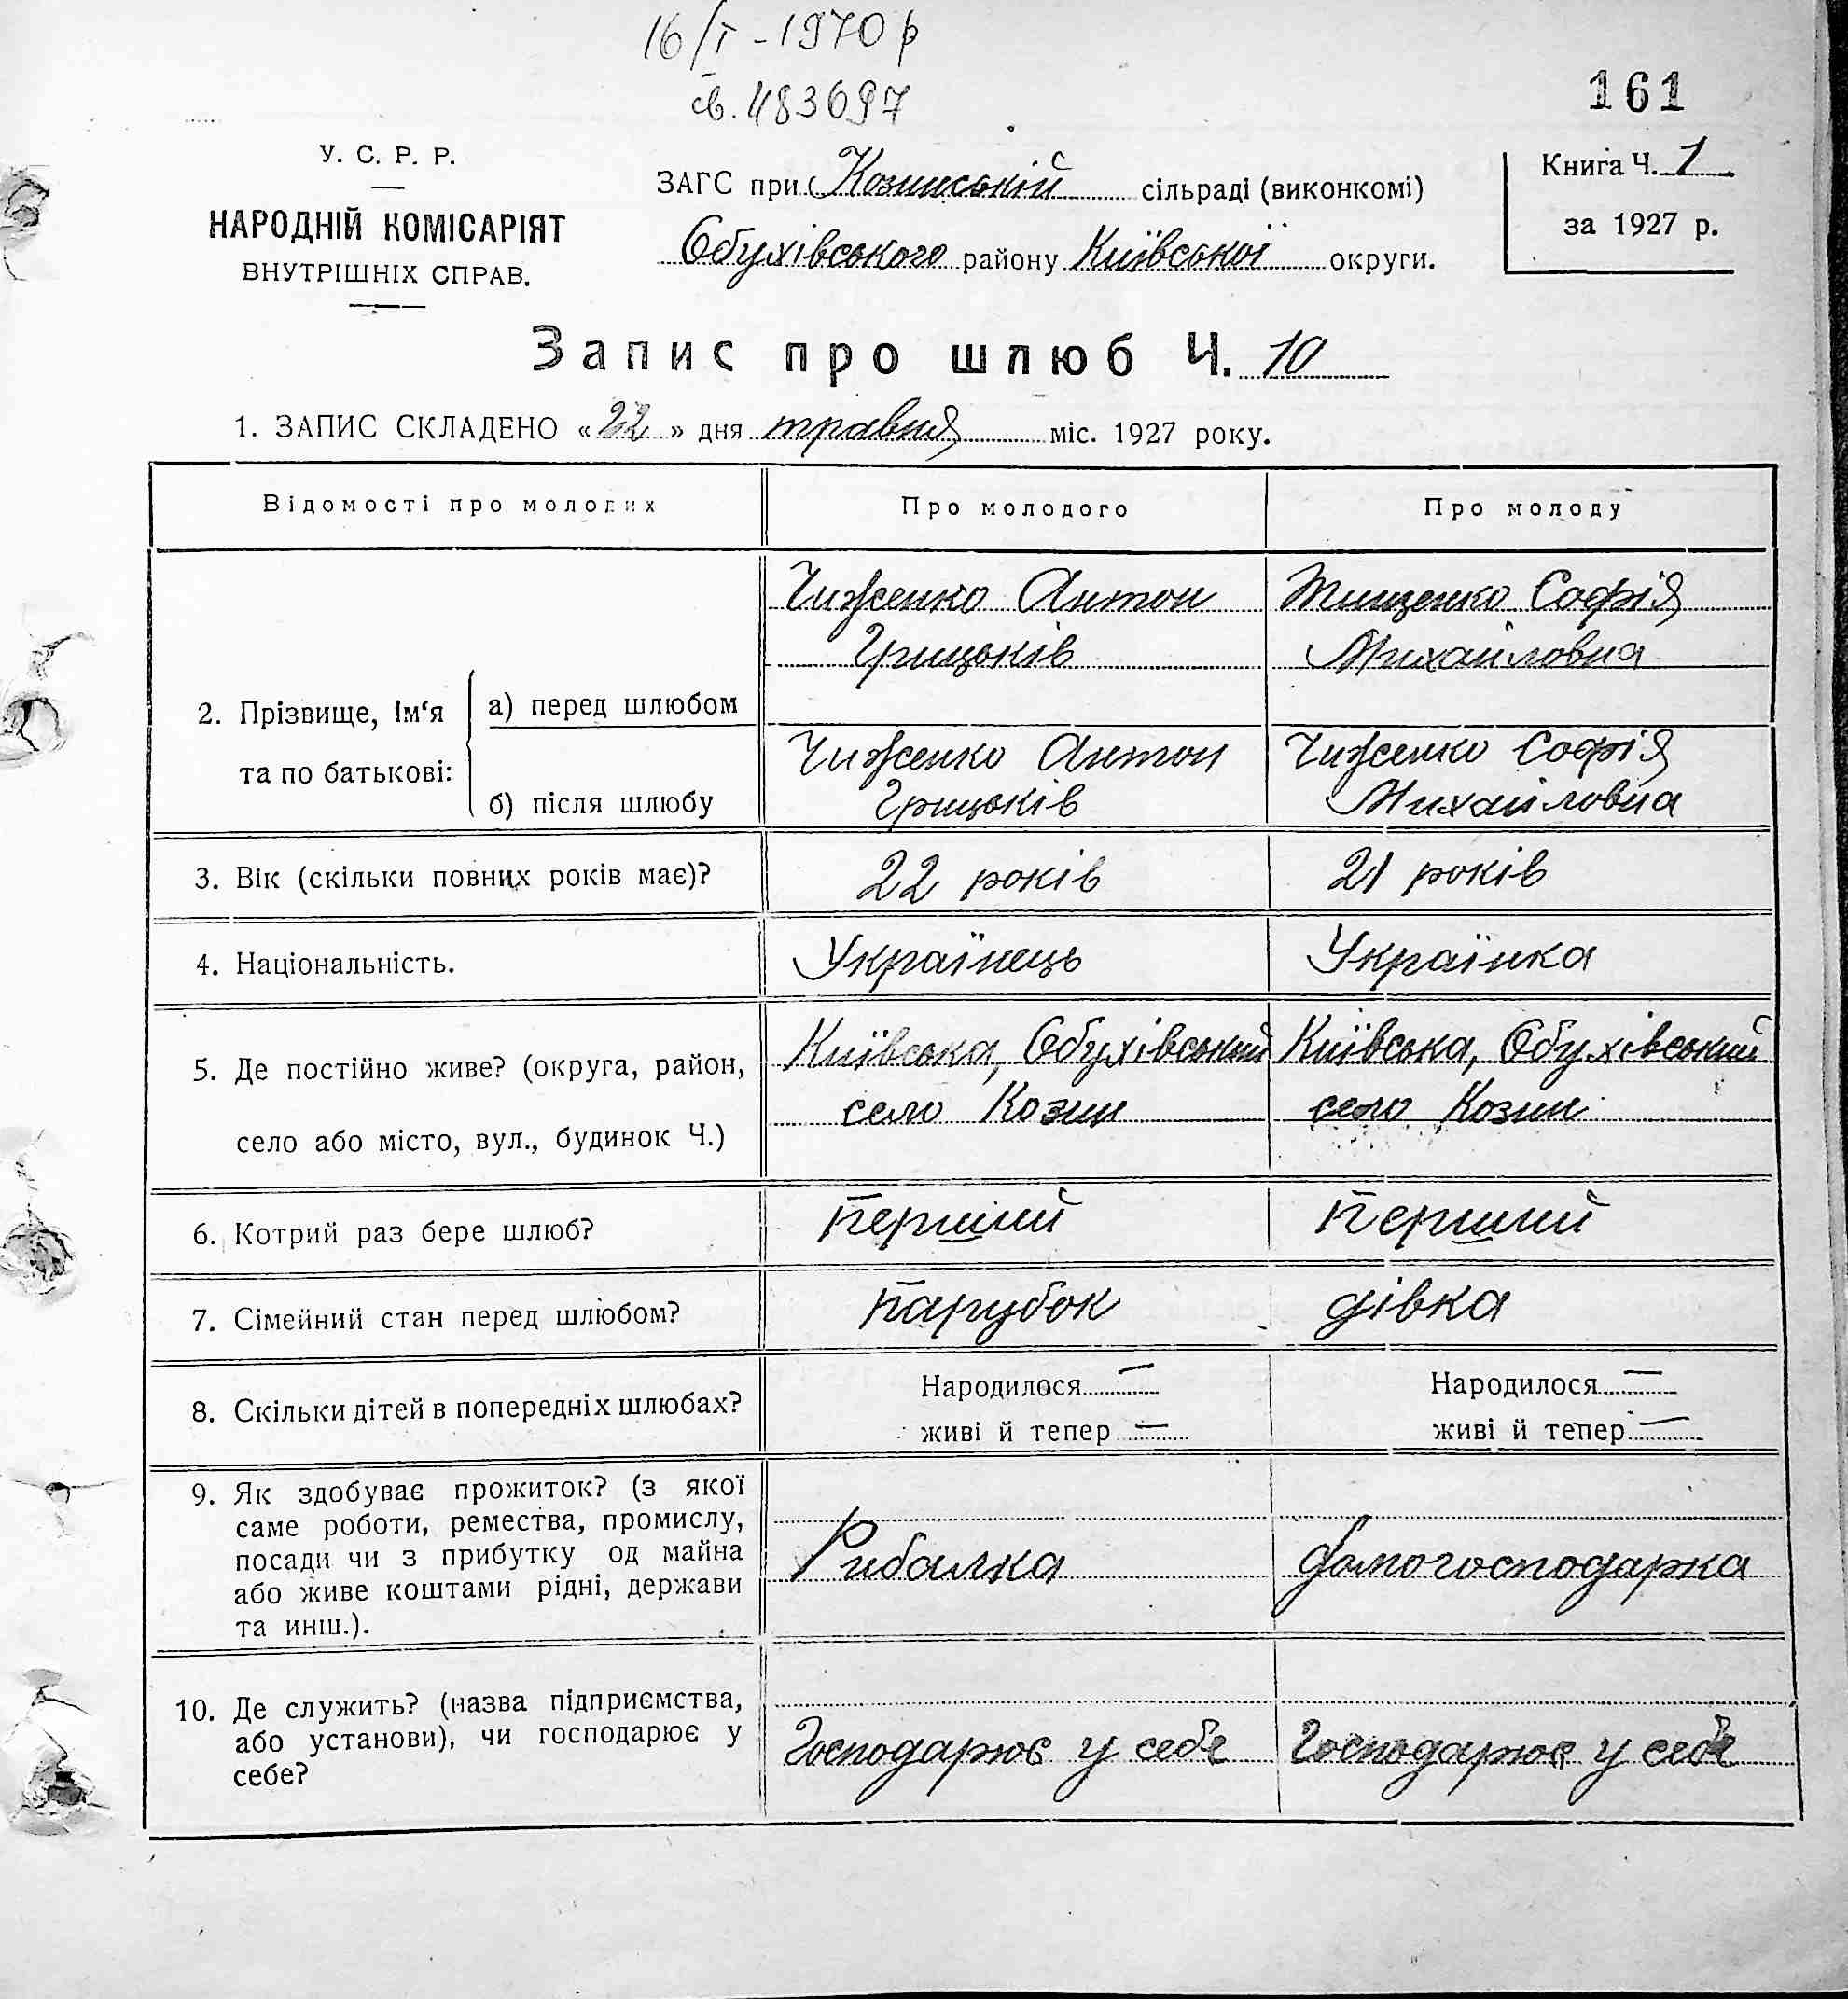 16/I - 1970 р
св. 483697
161
У. С. Р. Р.
НАРОДНІЙ КОМІСАРІЯТ
ВНУТРІШНІХ СПРАВ.
ЗАГС при Козинській сільраді (виконкомі)
Обухівського району Київської округи.
Книга Ч. 1
за 1927 р.
Запис про шлюб Ч. 10
1. ЗАПИС СКЛАДЕНО « 22 » дня травня міс. 1927 року.
Відомості про молодих
Про молодого
Про молоду
2. Прізвище, ім‘я
та по батькові:
а) перед шлюбом
Чиженко Антон
Грицьків
Тищенко Софія
Михайловна
б) після шлюбу
Чиженко Антон
Грицьків
Чиженко Софія
Михайловна
3. Вік (скільки повних років має)?
22 років
21 років
4. Національність.
Українець
Українка
5. Де постійно живе? (округа, район,
село або місто, вул., будинок Ч.)
Київська, Обухівський
село Козин
Київська, Обухівський
село Козин
6. Котрий раз бере шлюб?
Перший
Перший
7. Сімейний стан перед шлюбом?
парубок
дівка
8. Скільки дітей в попередніх шлюбах?
Народилося —
живі й тепер —
Народилося —
живі й тепер —
9. Як здобуває прожиток? (з якої
саме роботи, ремества, промислу,
посади чи з прибутку од майна
або живе коштами рідні, держави
та инш.).
Рибалка
домогосподарка
10. Де служить? (назва підприємства,
або установи), чи господарює у
себе?
Господарює у себе
Господарює у себе